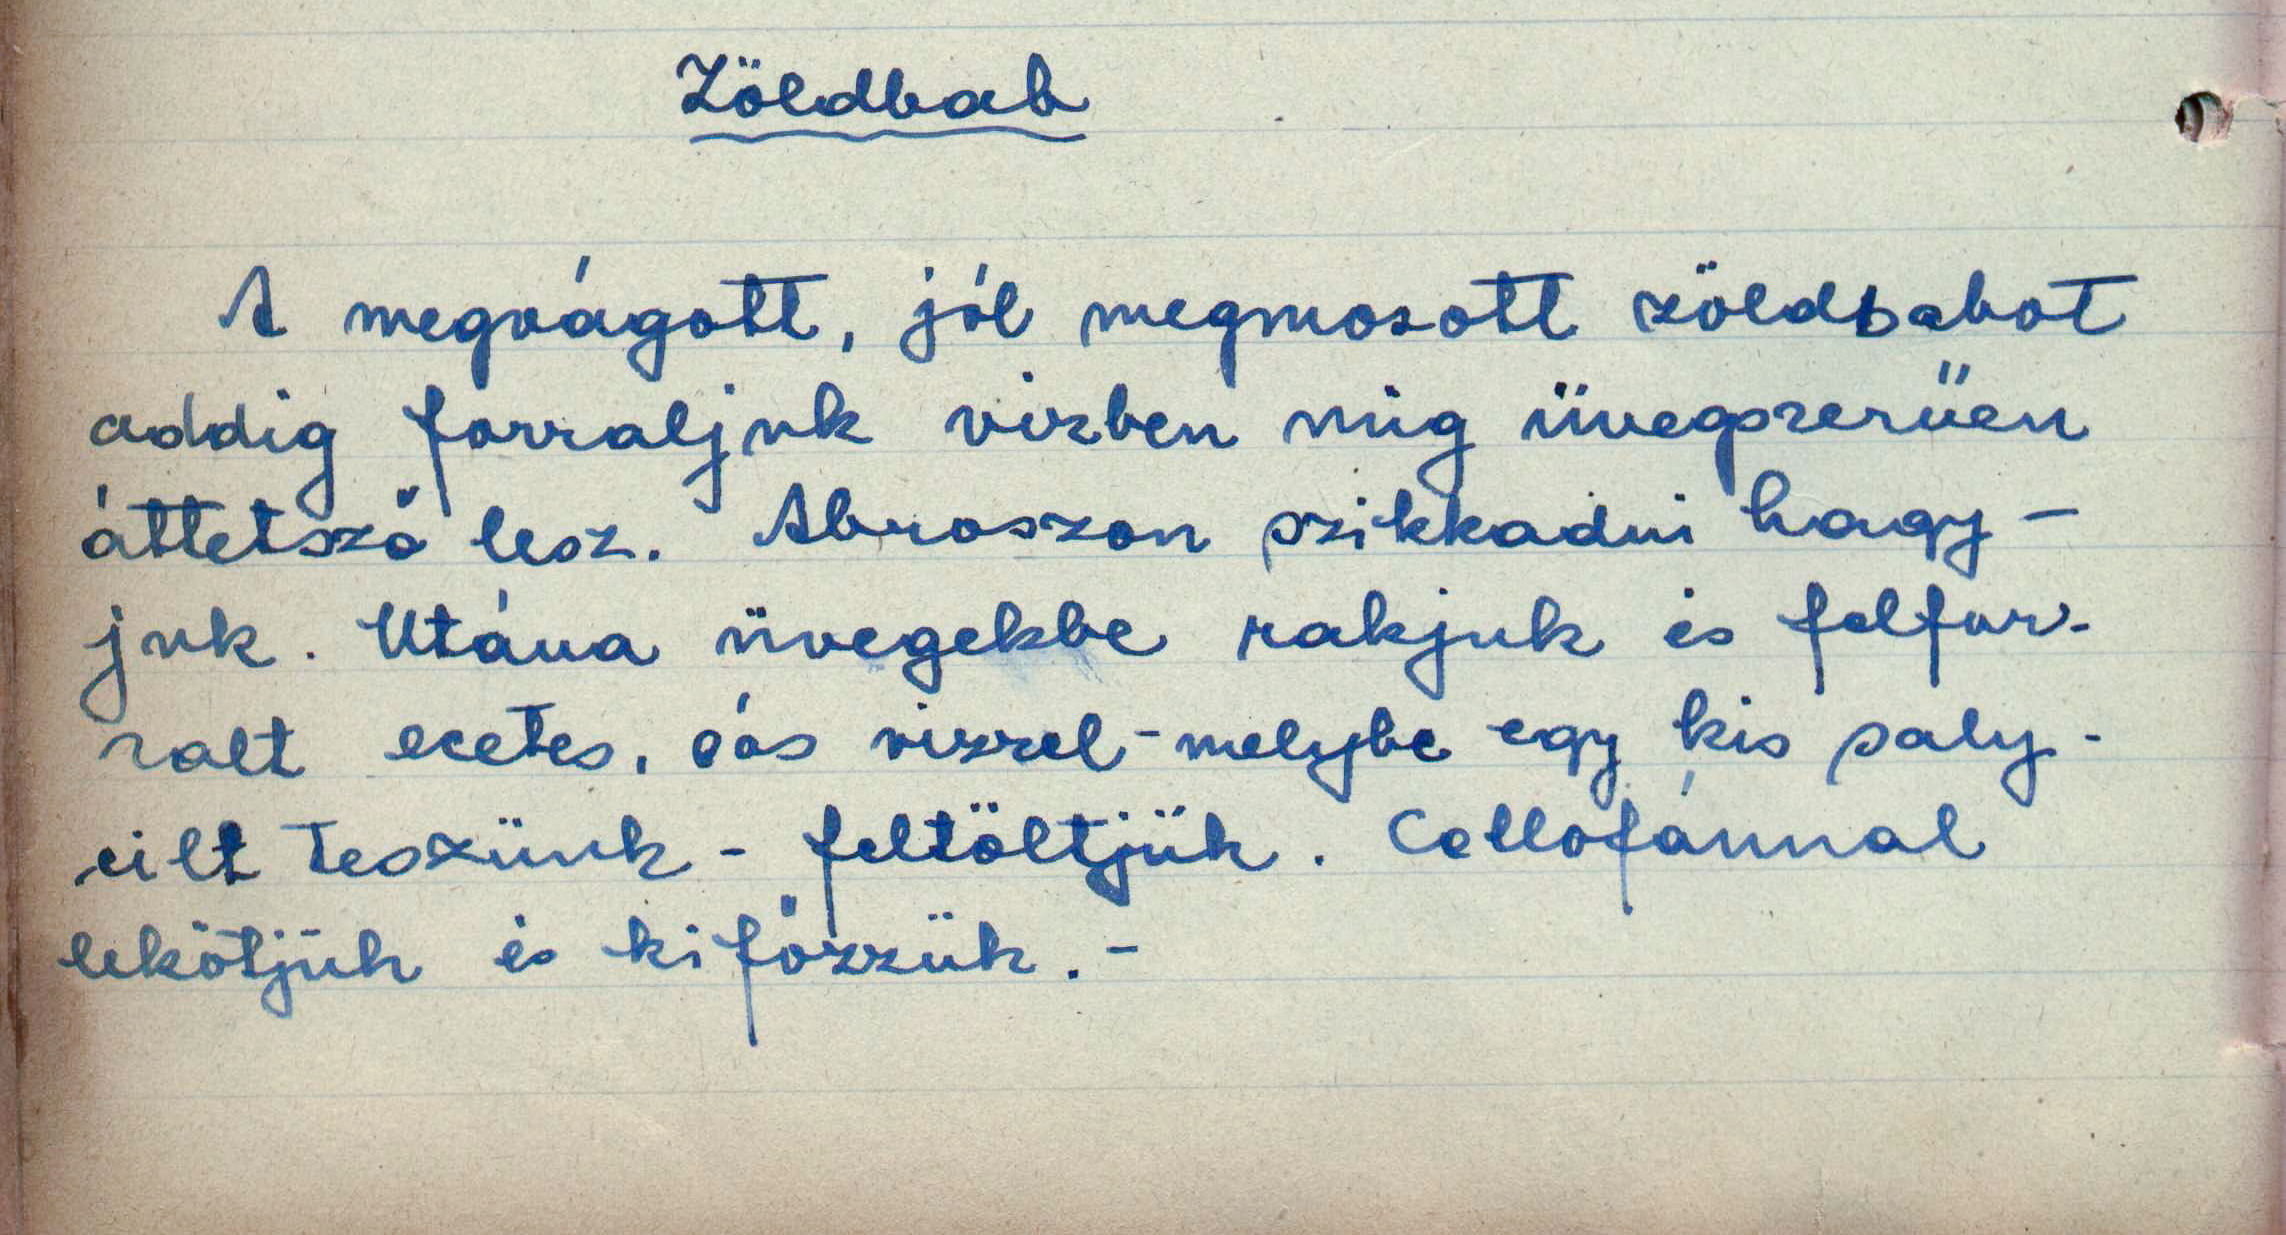 Zöldbab
A megvágott, jól megmosott zöldbabot
addig forraljuk vizben mig üvegszerűen
áttetsző lesz. Abroszon szikkadni hagy-
juk. Utána üvegekbe rakjuk és felfor-
ralt ecetes, sós vizzel - melybe egy kis saly-
cilt teszünk - feltöltjük. Cellofánnal
lekötjük és kifőzzük. -